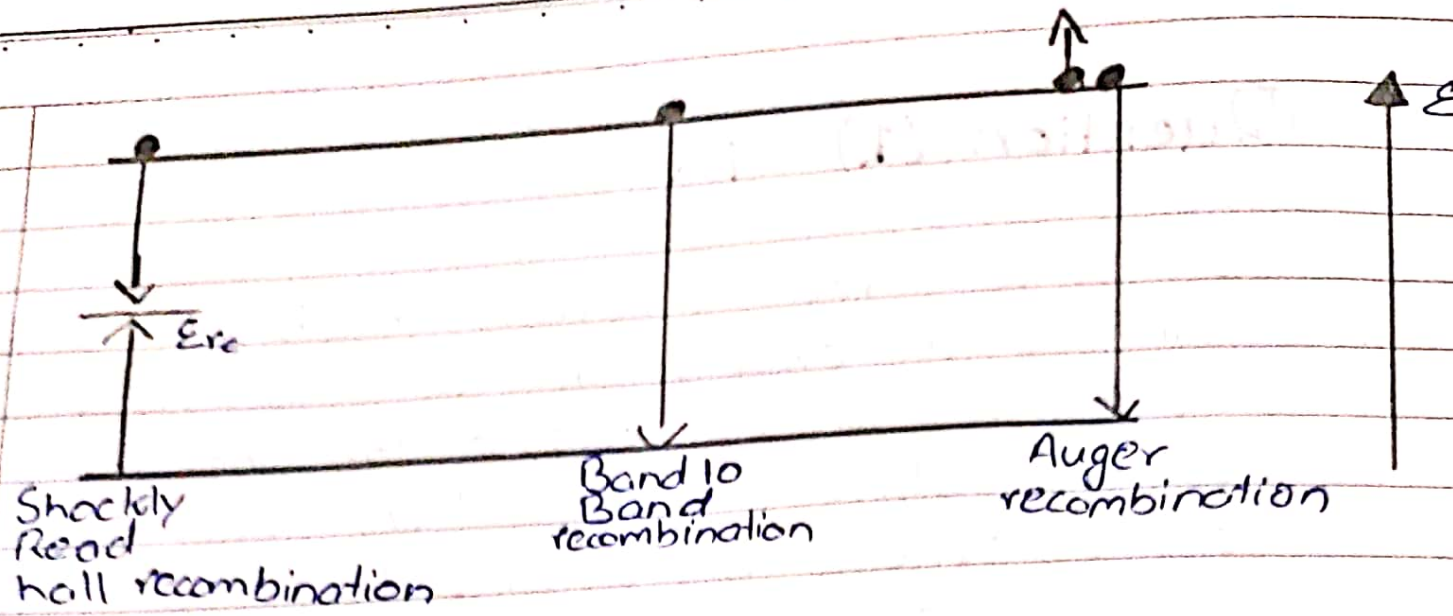 E
Erc
Shockly
Read
hall recombination
Band to
Band
recombination
Auger
recombination